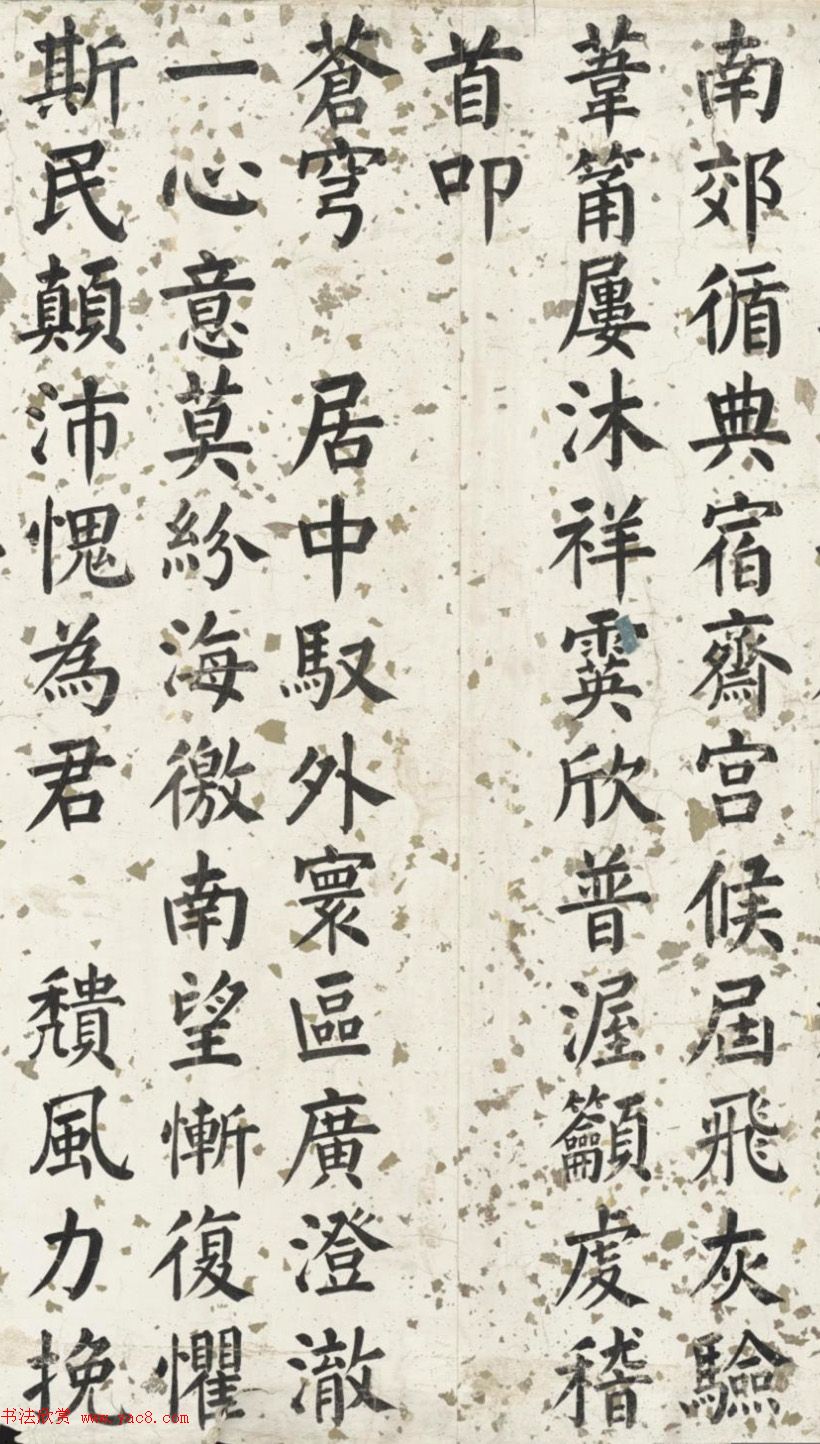 南郊循典宿齋宮候屆飛灰驗
葦籥屢沐祥霙欣普渥籲虔稽
首叩
蒼穹 居中馭外寰區廣澄澈
一心意莫紛海徼南望慚復懼
斯民顛沛愧為君 頹風力挽
书法欣赏 www.yac8.com